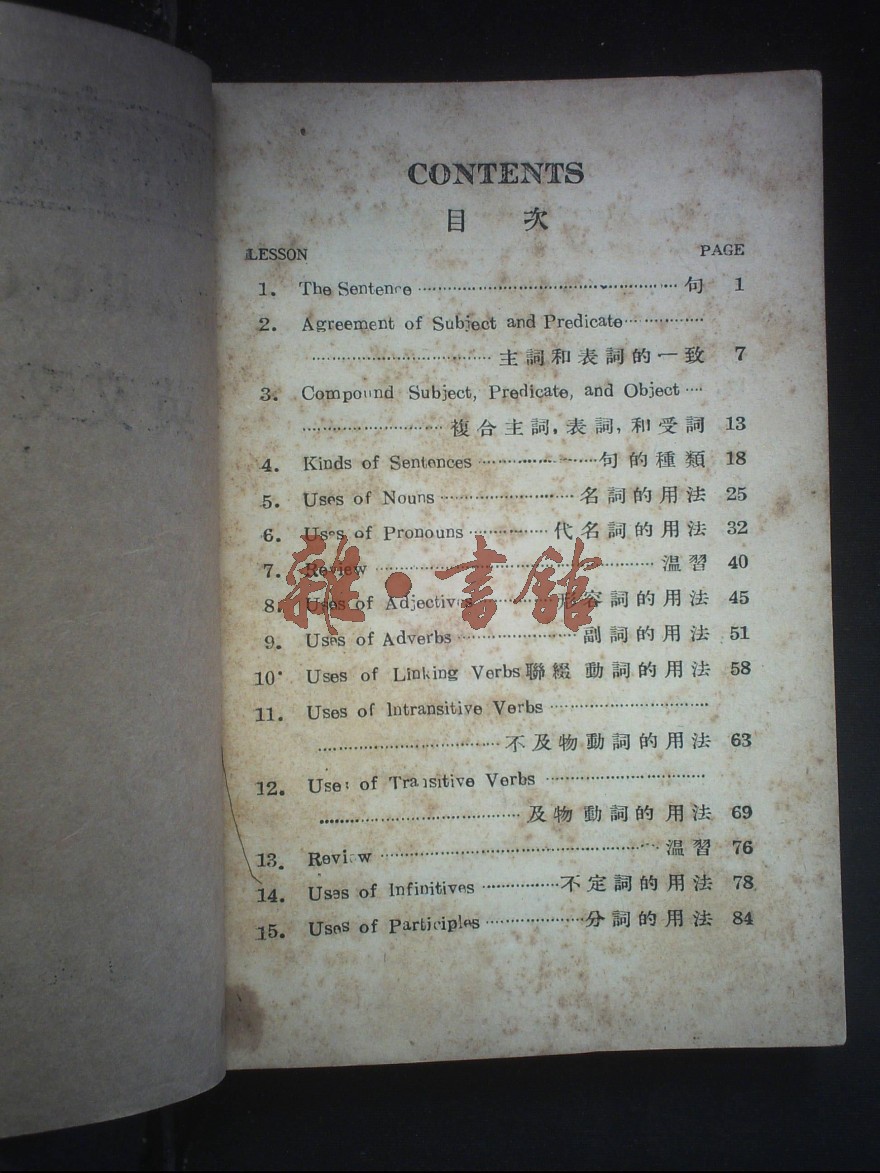 CONTENTS
目 次
LESSON PAGE
1. The Sentence 句 1
2. Agreement of Subject and Predicate
主詞和表詞的一致 7
3. Compound Subject, Predicate, and Object
複合主詞,表詞,和受詞 13
4. Kinds of Sentences 句的種類 18
5. Uses of Nouns 名詞的用法 25
6. Uses of Pronouns 代名詞的用法 32
7. Review 溫習 40
8. Uses of Adjectives 形容詞的用法 45
9. Uses of Adverbs 副詞的用法 51
10. Uses of Linking Verbs 聯綴動詞的用法 58
11. Uses of Intransitive Verbs
不及物動詞的用法 63
12. Uses of Transitive Verbs
及物動詞的用法 69
13. Review 溫習 76
14. Uses of Infinitives 不定詞的用法 78
15. Uses of Participles 分詞的用法 84
雜·書館